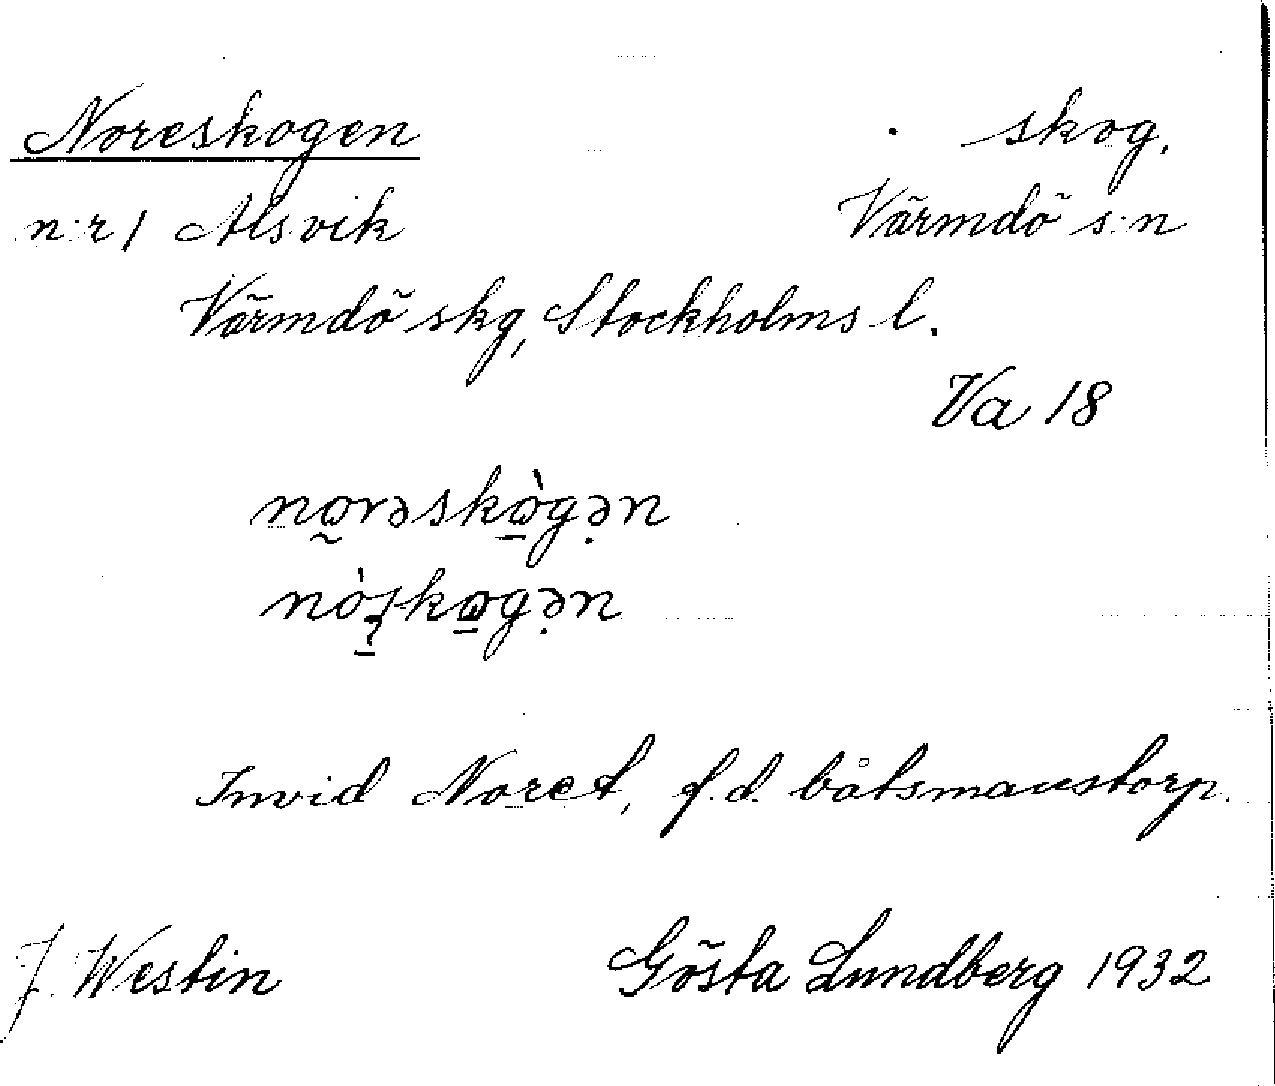 Noreskogen skog.
n:r 1 Alsvik Värmdö s:n
Värmdö skg, Stockholms l.
Va 18
Invid Noret, f.d. båtsmanstorp.
J. Westin Gösta Lundberg 1932